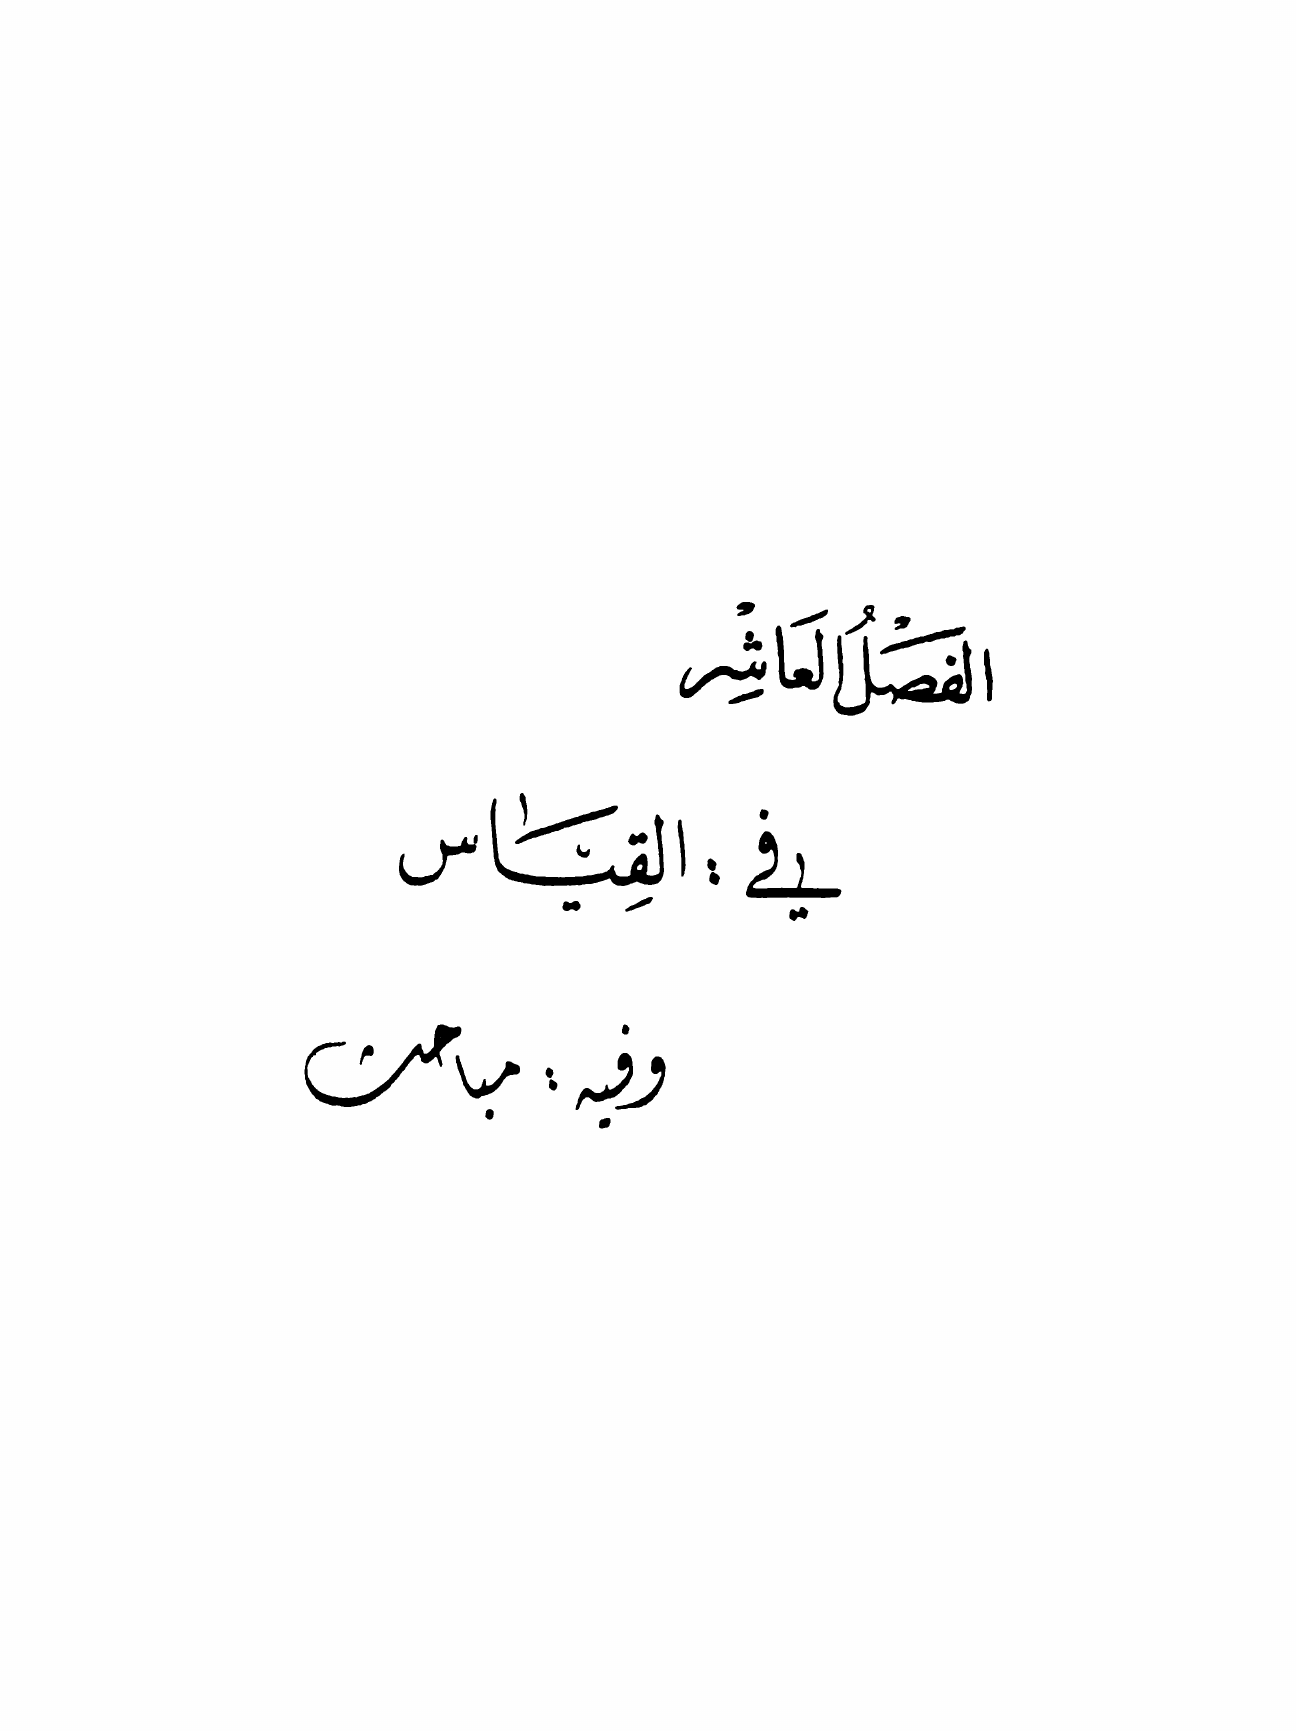 الفَصْلُ العَاشِر
في : القِيَاس
وفيه : مباحث